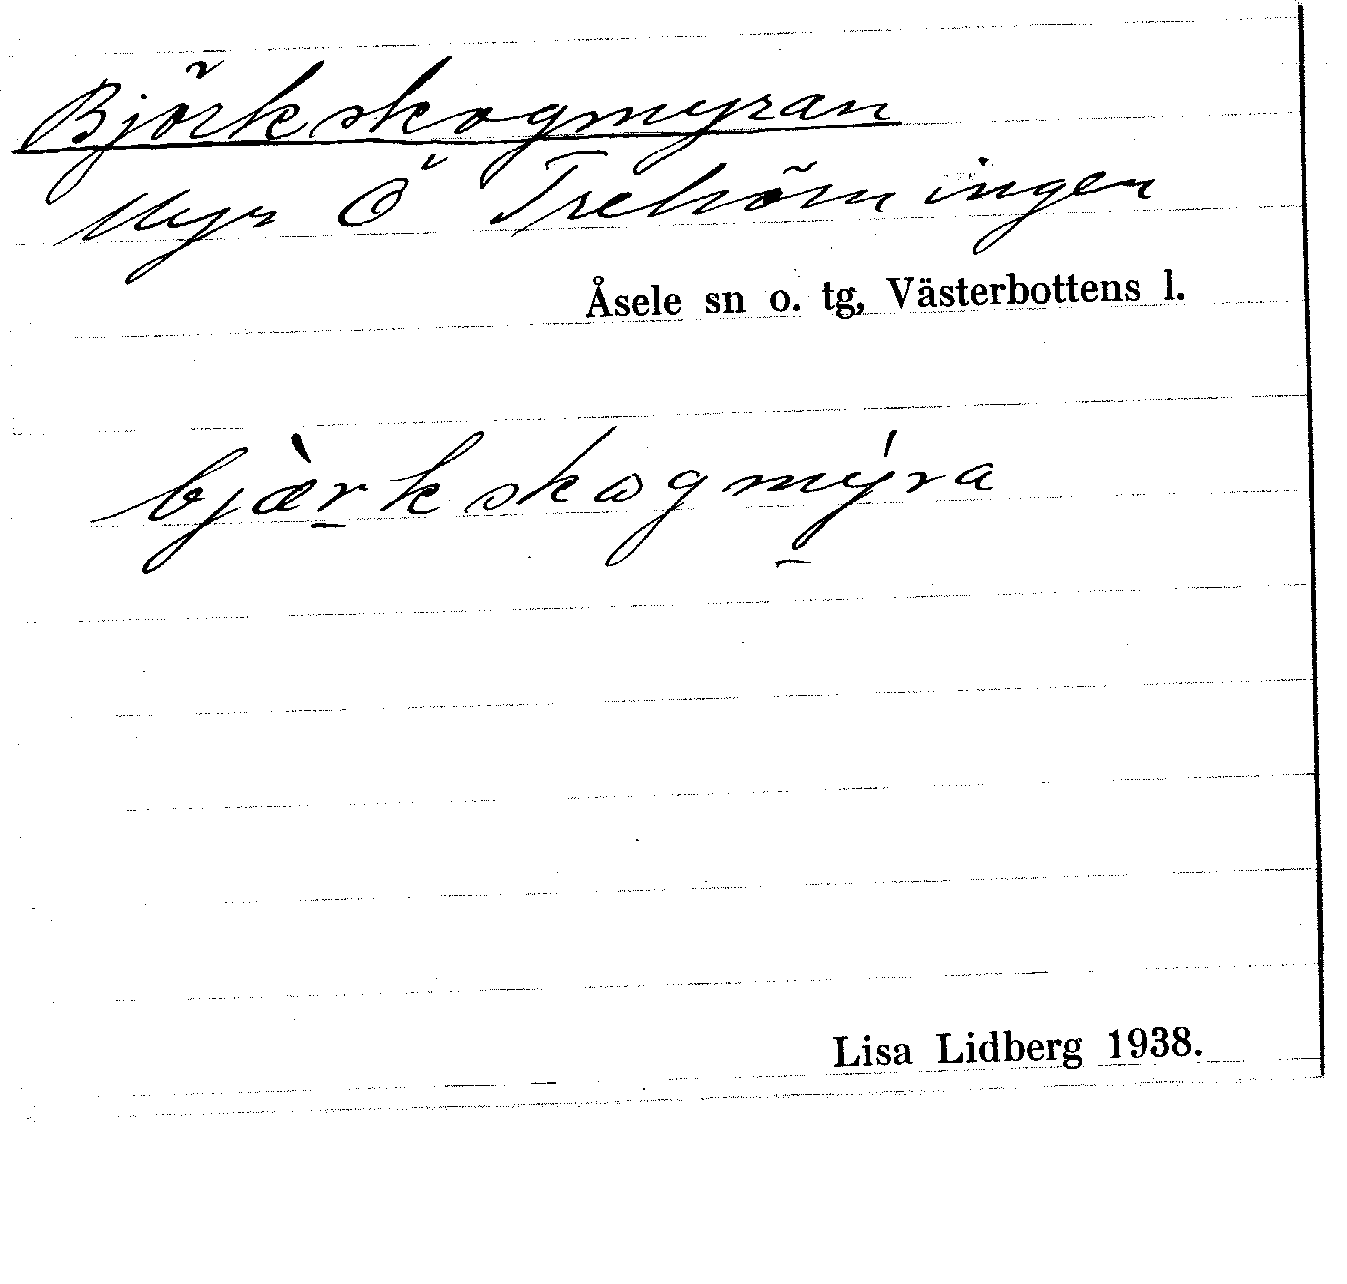 Björkskogmyran
Myr Ö Trehörningen
Åsele sn o. tg, Västerbottens l.
bjæ̀rkskogmýra
Lisa Lidberg 1938.